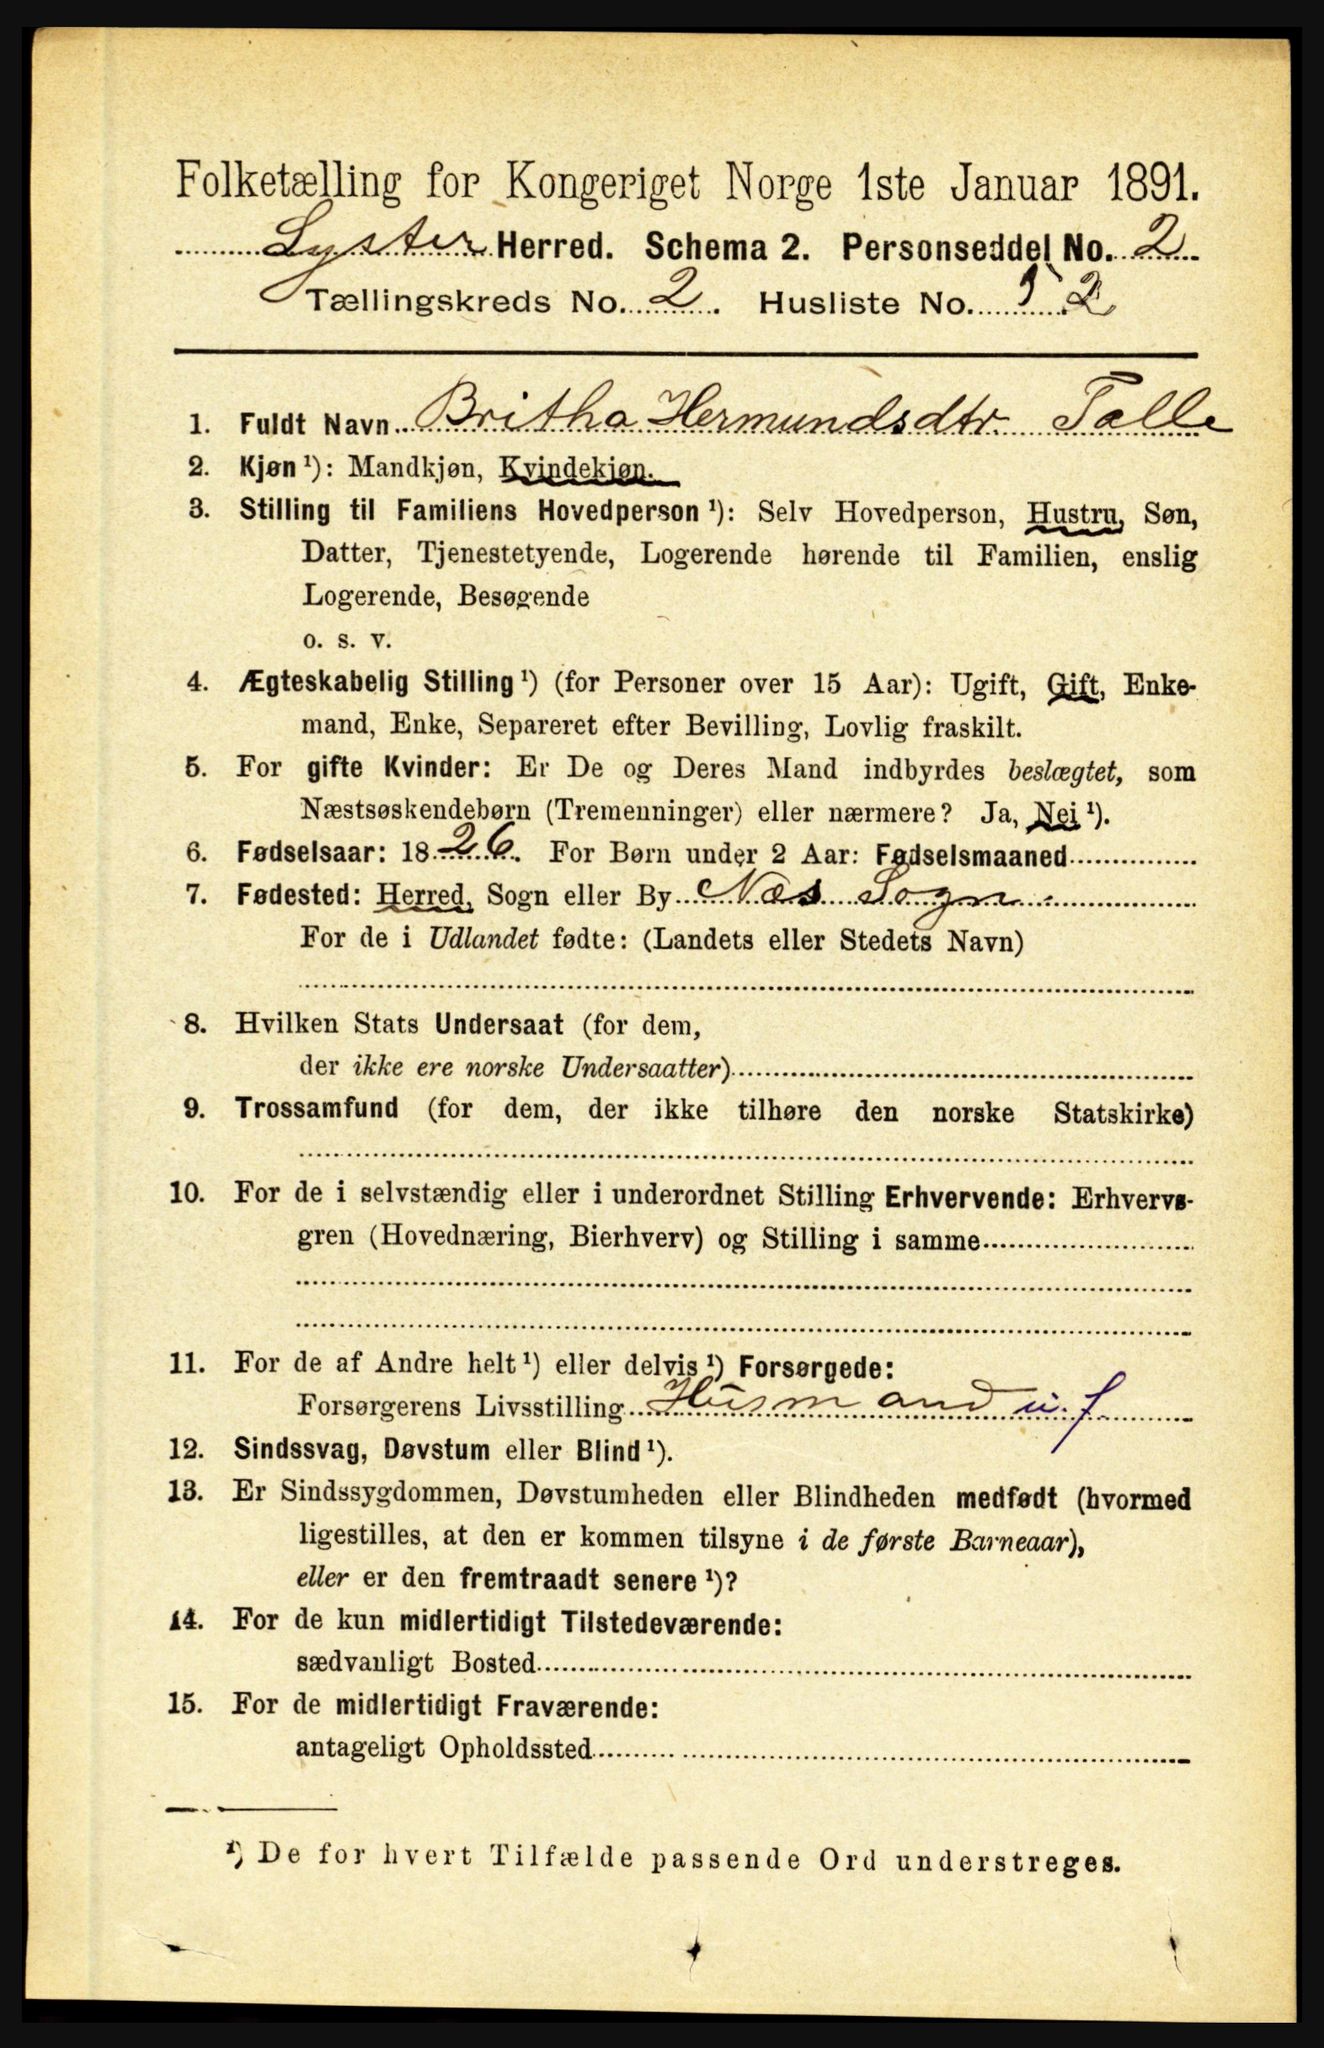 Folketælling for Kongeriget Norge 1ste Januar 1891.
Lyster Herred. Schema 2. Personseddel No. 2
Tællingskreds No. 2. Husliste No. 52
1. Fuldt Navn Britha Hermundsdtr. Talle
2. Kjøn ¹): Mandkjøn, Kvindekjøn.
3. Stilling til Familiens Hovedperson ¹): Selv Hovedperson, Hustru, Søn,
Datter, Tjenestetyende, Logerende hørende til Familien, enslig
Logerende, Besøgende
o. s. v.
4. Ægteskabelig Stilling ¹) (for Personer over 15 Aar): Ugift, Gift, Enke-
mand, Enke, Separeret efter Bevilling, Lovlig fraskilt.
5. For gifte Kvinder: Er De og Deres Mand indbyrdes beslægtet, som
Næstsøskendebørn (Tremenninger) eller nærmere? Ja, Nei ¹).
6. Fødselsaar: 1826. For Børn under 2 Aar: Fødselsmaaned
7. Fødested: Herred, Sogn eller By Næs Sogn.
For de i Udlandet fødte: (Landets eller Stedets Navn)
8. Hvilken Stats Undersaat (for dem,
der ikke ere norske Undersaatter)
9. Trossamfund (for dem, der ikke tilhøre den norske Statskirke)
10. For de i selvstændig eller i underordnet Stilling Erhvervende: Erhvervs-
gren (Hovednæring, Bierhverv) og Stilling i samme
11. For de af Andre helt ¹) eller delvis ¹) Forsørgede:
Forsørgerens Livsstilling Husmand u. f.
12. Sindssvag, Døvstum eller Blind ¹).
13. Er Sindssygdommen, Døvstumheden eller Blindheden medfødt (hvormed
ligestilles, at den er kommen tilsyne i de første Barneaar),
eller er den fremtraadt senere ¹)?
14. For de kun midlertidigt Tilstedeværende:
sædvanligt Bosted
15. For de midlertidigt Fraværende:
antageligt Opholdssted
¹) De for hvert Tilfælde passende Ord understreges.